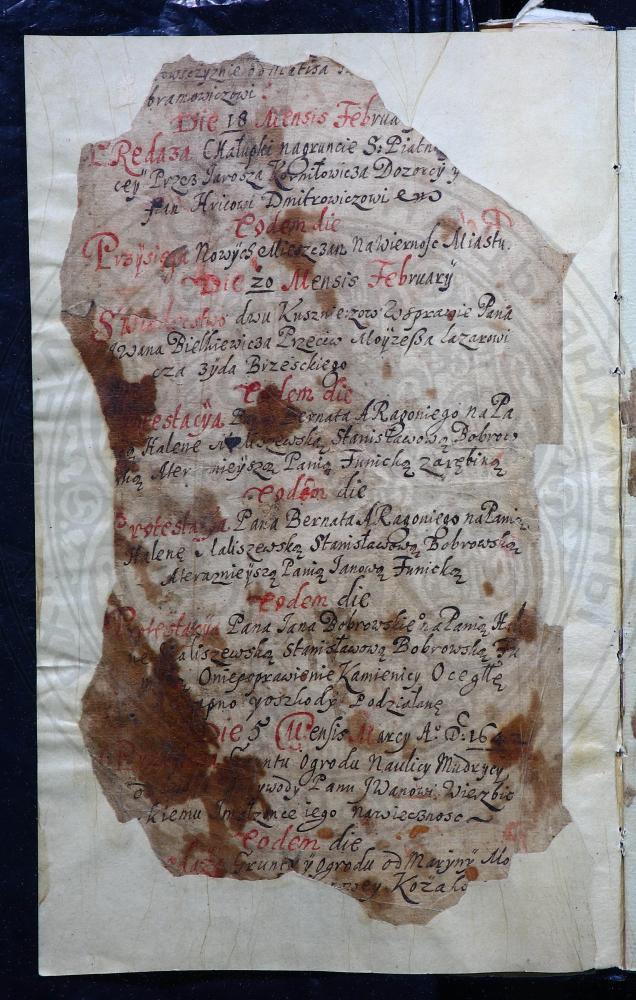 owszczyznie od matisa
bramowiczowi
Die 18 Mensis Februa
Redaza Chałupki nagruncie S: Piatn
cey Przez Jarosza Korniłowicza Dozorcy y
pan Hricowi Dmitrowiczowi
Eodem die
Przysięga Nowych Mieszczan Na Wiernosc Miastu.
Die 20 Mensis February
Swiadectwo dwu Kusznierzow Wsprawie Pana
Jwana Bielkiewicza Przeciw Moyzeßa Lazarowi
cza zyda Brzesckiego
Eodem die
testacyia Bernata ARagoniego na Pa
Halenę Stanisławową Bobrow
ską Ater mieyszą Panią Funicką zarębiną
Eodem die
Protestacyia Pana Bernata ARagoniego na Panią
Halenę Maliszewską Stanisławową Bobrowską
Ateraznieyszą Panią Janową Funicką
Eodem die
Protestacyia Pana Jana Bobrowskie° na Panią Hal
aliszewską Stanisławową Bobrowską Fu
Oniepoprawienie Kamienicy Ocegłę
pno yoszkody Podziałanę
Die 5 Mensis Marcy A° D: 164
Gruntu Ogrodu Naulicy Mudrycy
wody Panu JWanowi Wierzbic
kiemu Jmałzonce iego nawiecznosc
Eodem die
Gruntu y Ogrodu od Maryny Mo
zowey Kozak